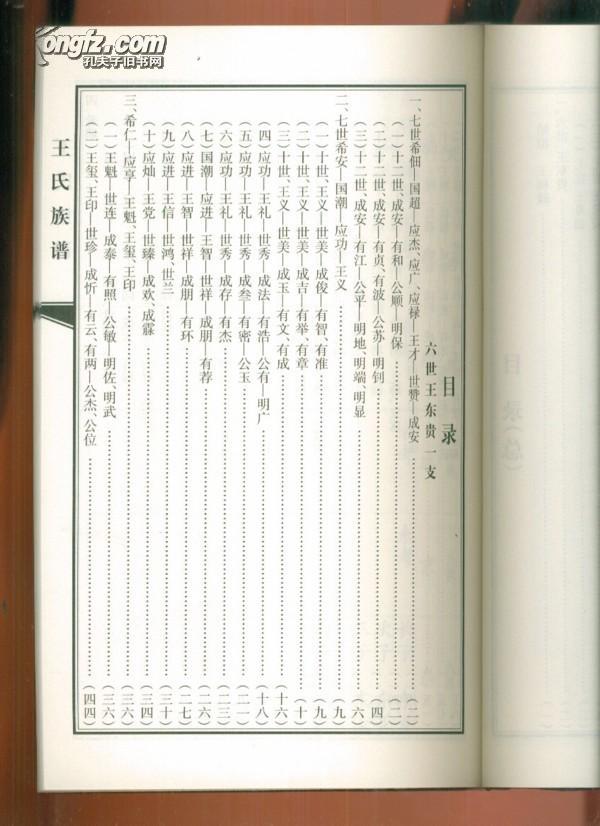 kongfz.com
孔夫子旧书网
目录
六世王东贵一支
一、七世希佃—国超—应杰、应广、应禄—王才—世赞—成安……(二)
(一)十二世、成安—有和—公顺—明保……(二)
(二)十二世、成安—有贞、有波—公苏—明钊……(四)
(三)十二世、成安—有江—公平—明地、明端、明显……(六)
二、七世希安—国潮—应功—王义……(九)
(一)十世、王义—世美—成俊—有智、有准……(九)
(二)十世、王义—世美—成吉—有举、有章……(十)
(三)十世、王义—世美—成玉—有文、有成……(十六)
(四)应功—王礼—世秀—成法—有浩—公有—明广……(十八)
(五)应功—王礼—世秀—成叁—有密—公玉……(二一)
(六)应功—王礼—世秀—成存—有杰……(二三)
(七)国潮—应进—王智—世祥—成朋—有荐……(二六)
(八)应进—王智—世祥—成朋—有环……(二七)
(九)应进—王信—世鸿、世兰……(三十)
(十)应灿—王党—世臻—成欢、成霖……(三四)
三、希仁—应亨—王魁、王玺、王印……(三六)
(一)王魁—世连—成泰—有照—公敏—明佐、明武……(三六)
(二)王玺、王印—世珍—成忻—有云、有两—公杰、公位……(四四)
王氏族谱
目录(总)